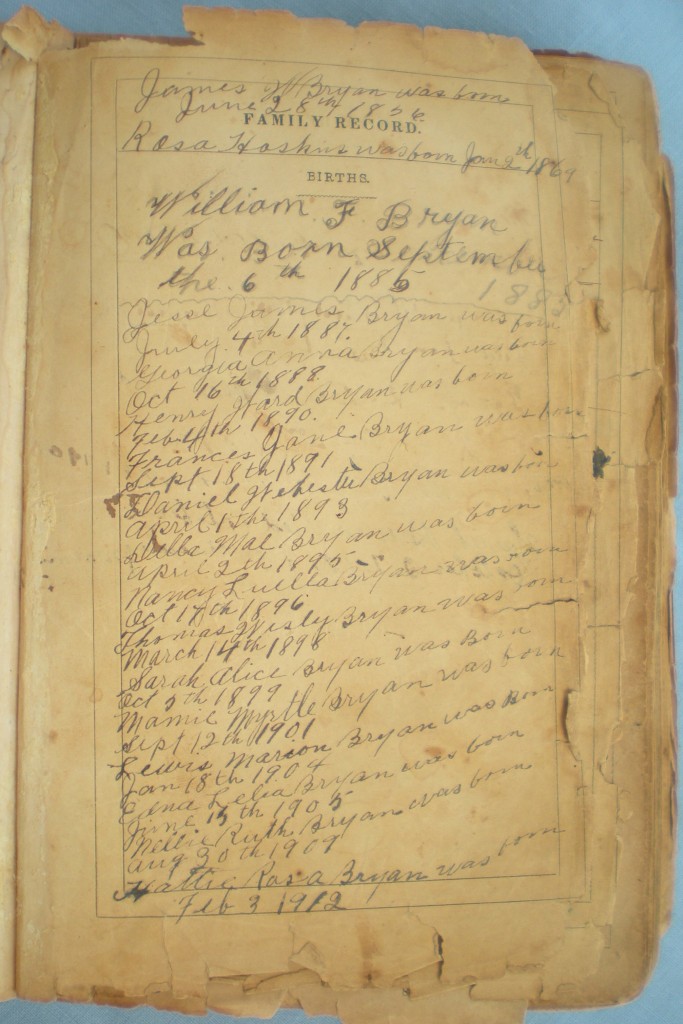 James W Bryan was born
June 28th 1856
FAMILY RECORD.
Rosa Hoskins was born Jan 9th 1869
BIRTHS.
William F Bryan
Was Born September
the 6th 1885 1885
Jesse James Bryan was born
July 4th 1887.
Georgia Anna Bryan was born
Oct 16th 1888.
Henry Ward Bryan was born
Feb 4th 1890.
Frances Jane Bryan was born
Sept 18th 1891
Daniel Webster Bryan was born
April 1the 1893
Mae Bryan was born
April 2th 1895
Nancy Luella Bryan was born
Oct 17th 1896
Thomas Wesly Bryan was born
March 14th 1898
Sarah Alice Bryan was Born
Oct 5th 1899
Mamie Myrtle Bryan was born
Sept 12th 1901
Lewis Marion Bryan was Born
Jan 18th 1904
Lelia Bryan was born
June 15th 1905
Nellie Ruth Bryan was born
Aug 30th 1909
Hattie Rosa Bryan was born
Feb 3 1912